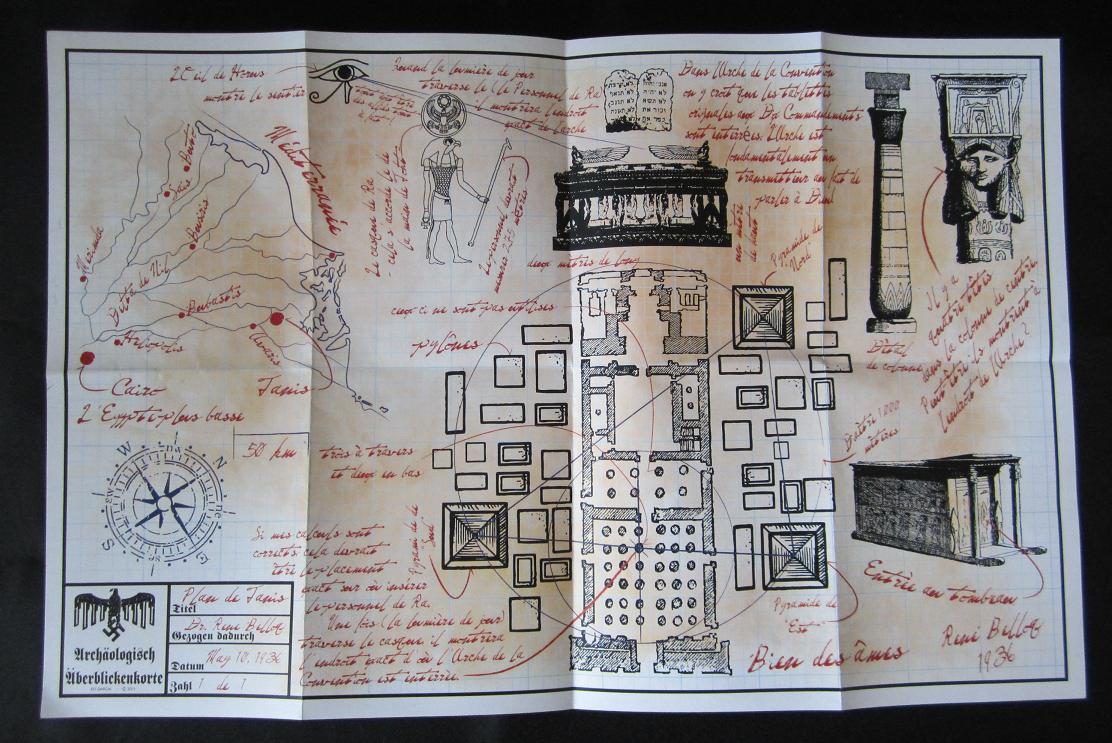 L'Œil de Horus
montre le sentier
Quand la lumière de jour
traverse le (le Personnel de Ra)
il montrera l'endroit
exact de l'arche
Dans l'Arche de la Convention
on y croit que les tablettes
originales aux Dix Commandments
sont interrées. L'Arche est
fondamentalement un
transmetteur au fait de
parler à Dieu
Méditerranée
Le casque de Ra
cela s'accorde de
la main de Toto
un mètre
de haut
deux mètres de long
Pyramide du
Nord
Sais
Delta du Nil
Bubastis
Heliopolis
Avaris
Cairo
Tanis
L'Egypte plus basse
50 km
W
N
S
E
ceux ci ne sont pas utilisés
pylônes
trois à travers
et deux en bas
Détail
de colonne
Il y a
dans la colonne de centre.
Peut être ils montrent à
l'endroit de l'Arche?
mètres
Si mes calculs sont
corrects cela devrait
être le placement
exact sur où insérer
le personnel de Ra.
Une fois (la lumière de jour)
traverse le casque il montrera
l'endroit exact d'où l'Arche de la
Convention est interrée.
Pyramide de
"Est"
Entrée au tombeau
Bien des âmes
René Belloq
1936
Plan de Tanis
Titel
Dr. René Belloq
Gezogen dadurch
May 10, 1936
Datum
Zahl 1 de 1
Archäologisch
Überblickenkorte